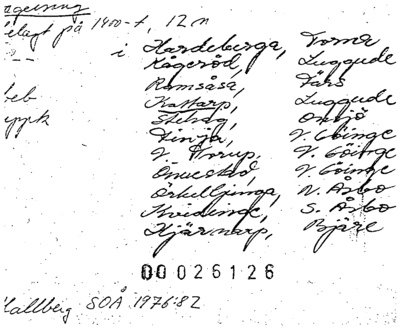 belagt på 1400-t, 12 n
i Hardeberga, Torna
Kågeröd, Luggude
Ramsåsa, Färs
Kattarp, Luggude
Stehag, Onsjö
Finja, V. Göinge
N. Torup, V. Göinge
Önnestad, V. Göinge
Örkelljunga, N. Åsbo
Kvidinge, S. Åsbo
Hjärnarp, Bjäre
00 026126
Hallberg SOÅ 1976:82